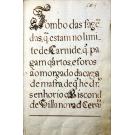 Tombo das faze
das, q̃ estam no limi
te de Carnide, q̃ pa
gam q̃artos, e foros
ao morgado da caza
de mafra de q̃ he dr.
senhorio o Biscond
de Villanova d Cerv.ra